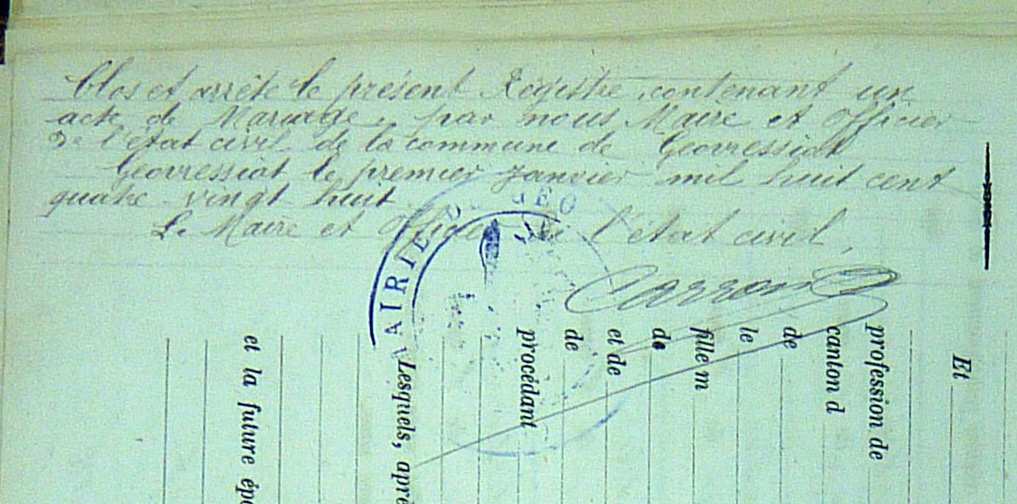 Clos et arrêté le présent Régistre, contenant un
acte de Mariage, par nous Maire et Officier
de l'état civil de la commune de Geovressiat
Geovressiat le premier Janvier mil huit cent
quatre-vingt huit
Le Maire et Officier de l'état civil,
AIRIE DE GEO
Et
profession de
canton d
de
le
fille m
de
et de
de
procédant
Lesquels, aprè
et la future épo